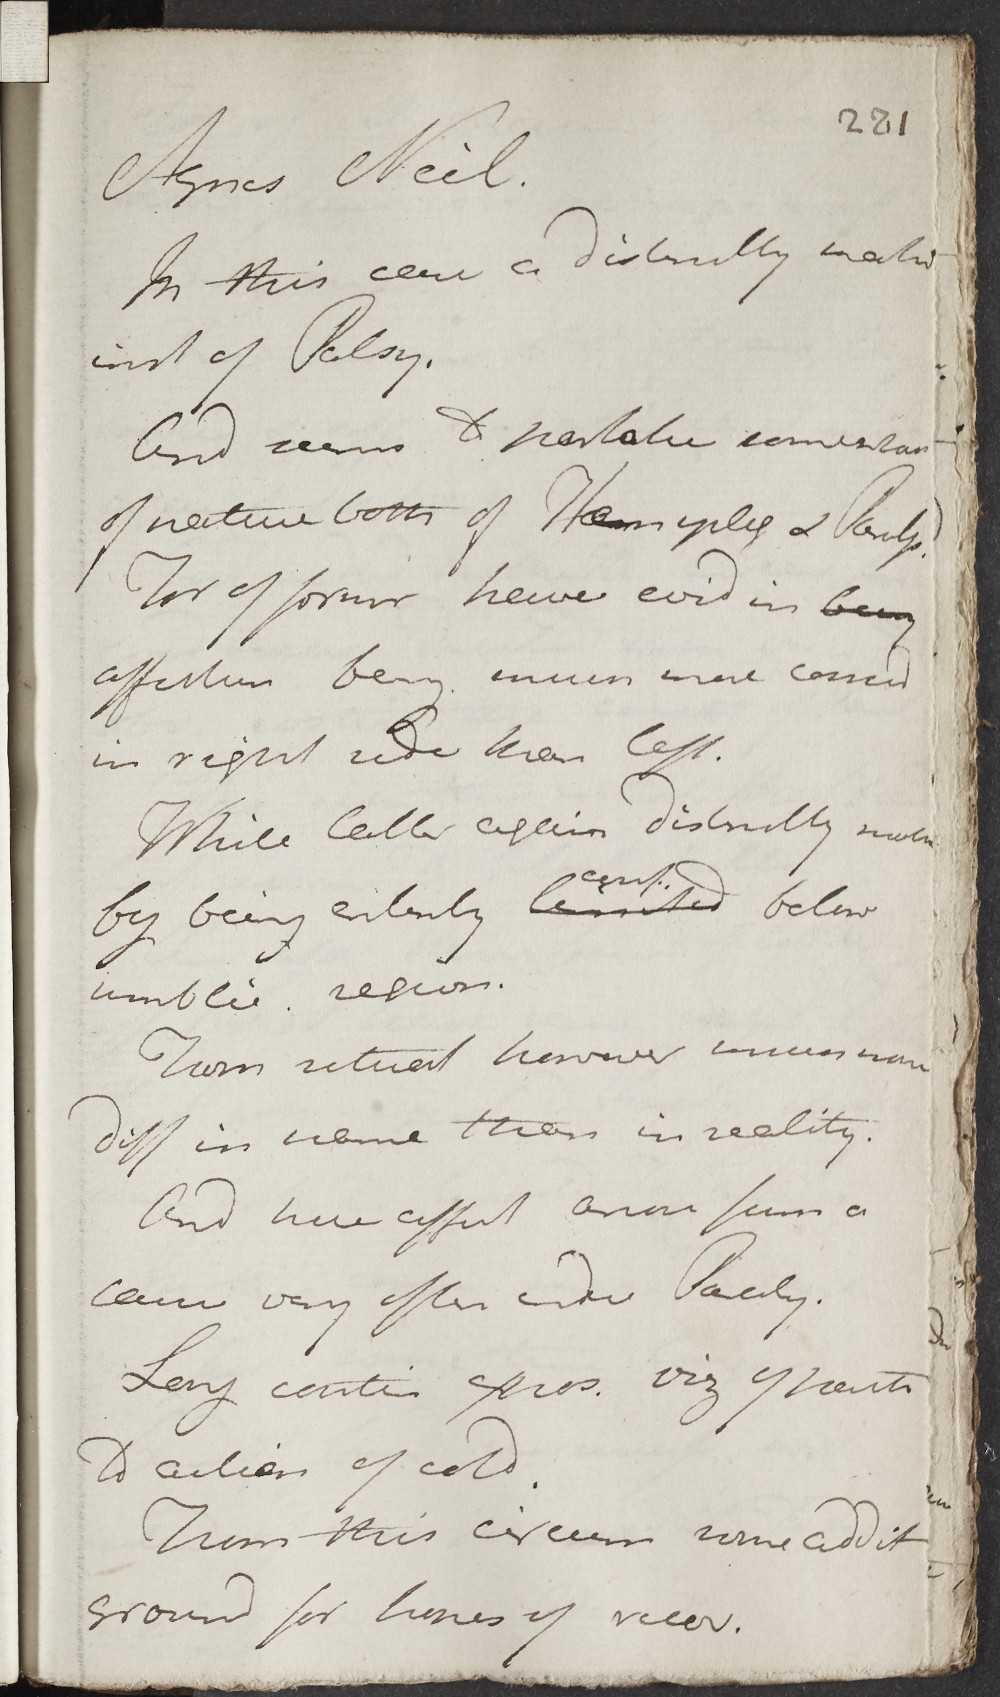 221
Agnes Neil.
In this case a distinctly mark'd
inst of Palsy.
And seems to partake somewhat
of nature both of Hemipleg & Parap.
For of former have evid in being
affection being much more consid
in right side than left.
While latter again distinctly mark
by being entirely limited conf. below
umblic. region.
From situat however much more
diff in name than in reality.
And here affect arose from a
cause very often induc Paraly.
Long contin expos. viz of parts
to action of cold.
From this circum some addit
ground for hopes of recov.